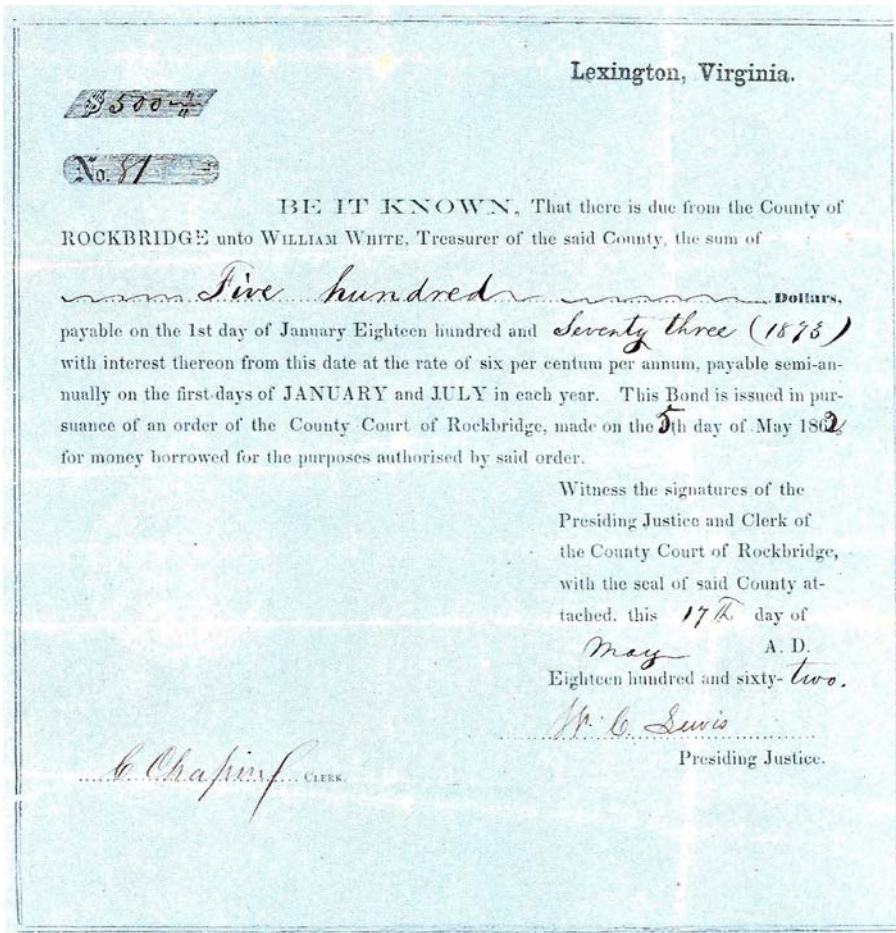 Lexington, Virginia.
$500
No. 81
BE IT KNOWN, That there is due from the County of
ROCKBRIDGE unto WILLIAM WHITE, Treasurer of the said County, the sum of
Five hundred Dollars,
payable on the 1st day of January Eighteen hundred and Seventy three (1873)
with interest thereon from this date at the rate of six per centum per annum, payable semi-an-
nually on the first days of JANUARY and JULY in each year. This Bond is issued in pur-
suance of an order of the County Court of Rockbridge, made on the 5th day of May 1862,
for money borrowed for the purposes authorised by said order.
Witness the signatures of the
Presiding Justice and Clerk of
the County Court of Rockbridge,
with the seal of said County at-
tached, this 17th day of
May A. D.
Eighteen hundred and sixty-two.
W. C. Lewis
Presiding Justice.
C Chapin CLERK.